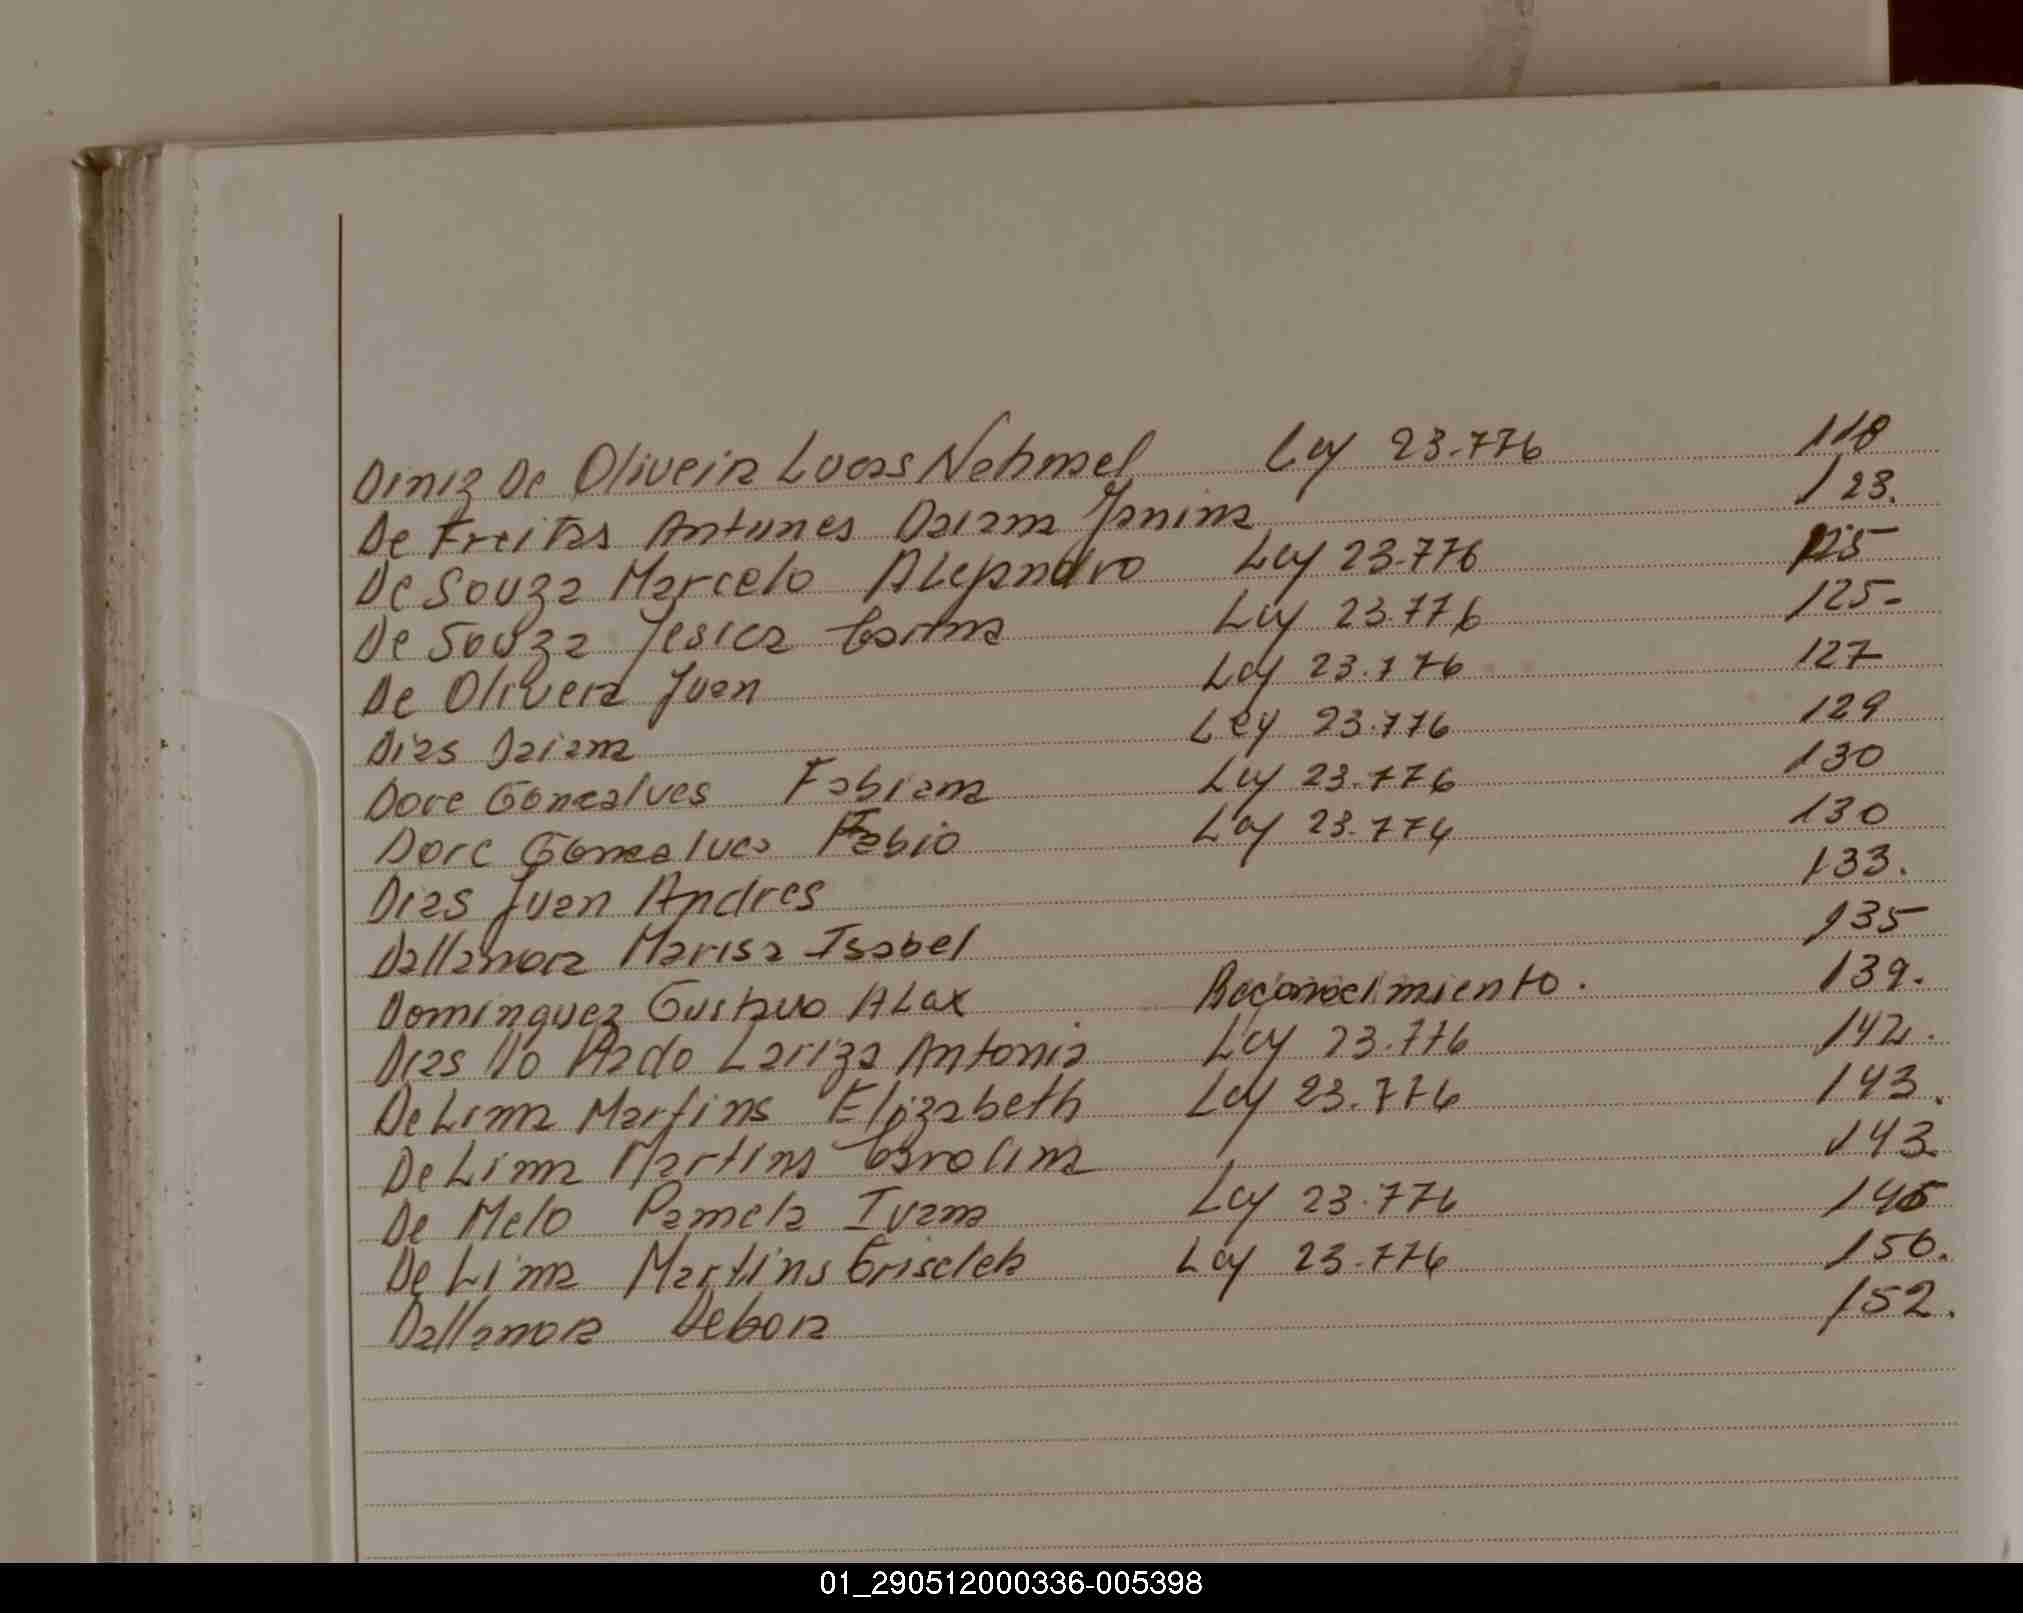 Diniz De Oliveira Lucas Nahmael Ley 23.776 118
De Freitas Antunes Daiana Yanina 123.
De Souza Marcelo Alejandro Ley 23.776 125
De Souza Yesica Carina Ley 23.776 125-
De Oliveira Juan Ley 23.776 127
Dias Daiana Ley 23.776 129
Dore Goncalves Fabiana Ley 23.776 130
Dore Goncalves Fabio Ley 23.776 130
Dias Juan Andres 133.
Dallanora Marisa Isabel 135
Dominguez Gustavo Alex Reconocimiento. 139.
Dias Do Prado Lariza Antonia Ley 23.776 142.
De Lima Martins Elizabeth Ley 23.776 143.
De Lima Martins Carolina 143
De Melo Pamela Ivana Ley 23.776 145
De Lima Martins Griselda Ley 23.776 150.
Dallanora Debora 152.
01_290512000336-005398